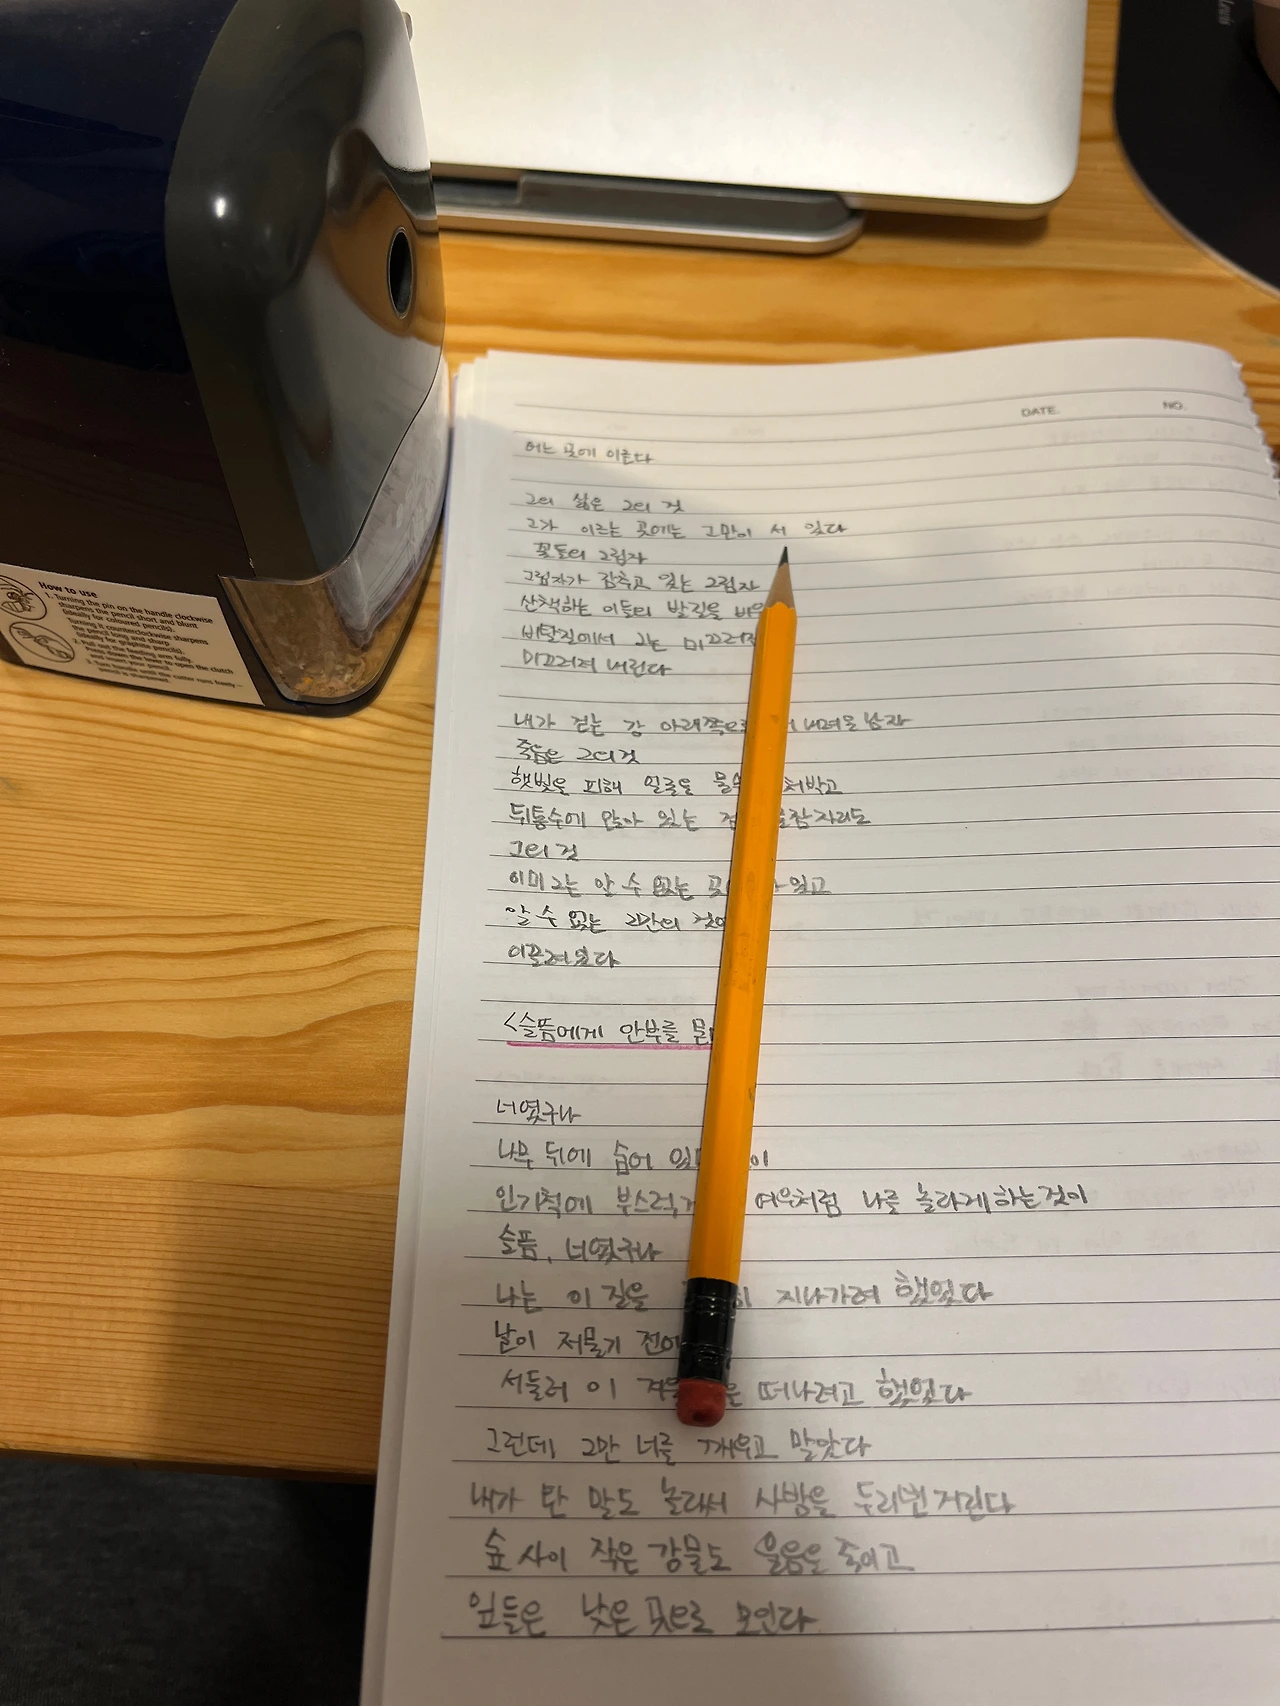 How to use
1. Turning the pin on the handle clockwise
sharpens the pencil short and blunt
(ideally for coloured pencils).
Turning it counterclockwise sharpens
the pencil long and sharp
(ideally for graphite pencils).
2. Pull out the feeding arm fully.
Press the lever to open the clutch
then insert your pencil.
3. Turn handle until the cutter runs freely –
pencil is sharpened.
DATE. NO.
어느 곳에 이른다
그의 삶은 그의 것
그가 이르는 곳에는 그만이 서 있다
꽃들의 그림자
그림자가 감추고 있는 그림자
산책하는 이들의 발길을
비탈길에서 그는
미끄러져 내린다
내가 걷는 강 아래쪽으로 내려온 남자
죽음은 그의 것
햇빛을 피해 얼굴을 처박고
뒤통수에 앉아 있는
그의 것
이미 그는 알 수 없는 있고
알 수 없는 그만의
이끌려 왔다
<슬픔에게 안부를
너였구나
나무 뒤에 숨어
인기척에 여우처럼 나를 놀라게 하는 것이
슬픔, 너였구나
나는 이 길을 지나가려 했었다
날이 저물기 전에
서둘러 이 떠나려고 했었다
그런데 그만 너를 깨우고 말았다
내가 탄 말도 놀라서 사방을 두리번거린다
숲 사이 작은 강물도 울음을 죽이고
잎들은 낮은 곳으로 모인다